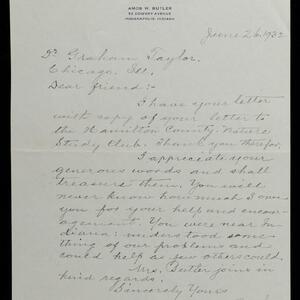 AMOS W. BUTLER
52 DOWNEY AVENUE
INDIANAPOLIS, INDIANA
June 26, 1932
Dr. Graham Taylor,
Chicago, Ill.
Dear friend:-
I have your letter
with copy of your letter to
the Hamilton County Nature
Study Club. Thank you therefor.
I appreciate your
generous words and shall
treasure them. You will
never know how much I owe
you for your help and encour-
agement. You were near In-
diana, understood some-
thing of our problems and
could help as few others could.
Mrs. Butler joins in
kind regards.
Sincerely Yours